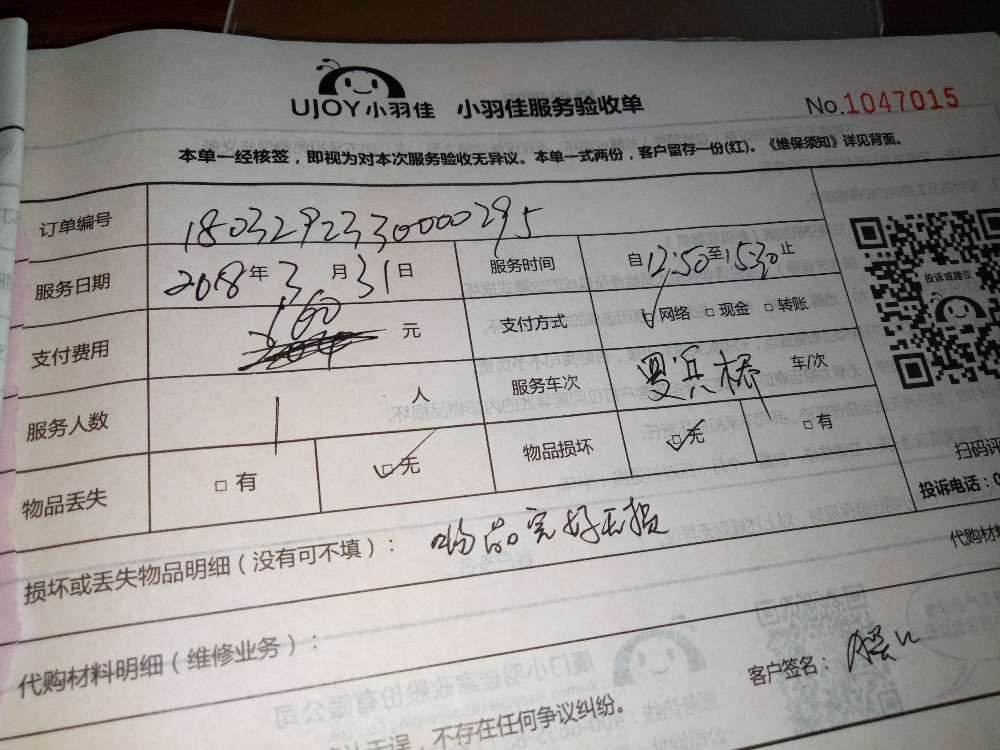 UJOY小羽佳 小羽佳服务验收单 No.1047015
本单一经核签，即视为对本次服务验收无异议。本单一式两份，客户留存一份(红)。《维保须知》详见背面。
订单编号 1803292330000295
服务日期 2018年3月31日 服务时间 自12:50至1530止
支付费用 160 元 支付方式 ☑网络 □现金 □转账
服务人数 1 人 服务车次 车/次
物品丢失 □有 ☑无 物品损坏 ☑无 □有
投诉或建议
扫码评
投诉电话：0
损坏或丢失物品明细（没有可不填）： 物品完好无损
代购材料
代购材料明细（维修业务）：
客户签名：
认无误，不存在任何争议纠纷。